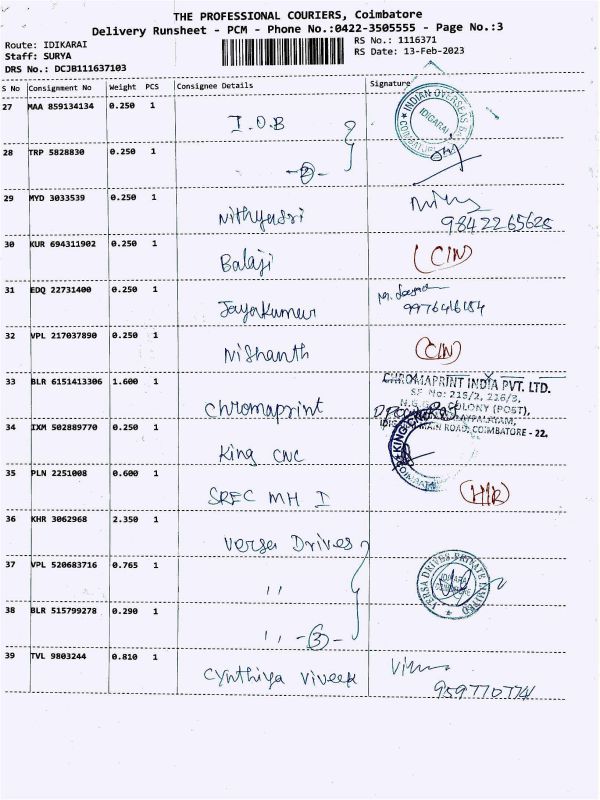 THE PROFESSIONAL COURIERS, Coimbatore
Delivery Runsheet - PCM - Phone No.:0422-3505555 - Page No.:3
Route: IDIKARAI
RS No.: 1116371
Staff: SURYA
RS Date: 13-Feb-2023
DRS No.: DCJB111637103
S No Consignment No Weight PCS Consignee Details Signature
27 MAA 859134134 0.250 1 I.O.B
INDIAN OVERSEAS IDIGARAI
28 TRP 5828830 0.250 1 -2-
29 MYD 3033539 0.250 1 Nithyasri
9842265625
30 KUR 694311902 0.250 1 Balaji (CIN)
31 EDQ 22731400 0.250 1 Jayakumar
9976416184
32 VPL 217037890 0.250 1 Nishanth (CIN)
33 BLR 6151413306 1.600 1 chromaprint
CHROMAPRINT INDIA PVT. LTD.
SF No: 215/2, 216/3,
COLONY (POST),
MAIN ROAD, COIMBATORE - 22.
34 IXM 502889770 0.250 1 King CNC
KING CNC
35 PLN 2251008 0.600 1 SREC MH I (H/R)
36 KHR 3062968 2.350 1 Versa Drives
37 VPL 520683716 0.765 1 ''
VERSA DRIVES PRIVATE LIMITED
38 BLR 515799278 0.290 1 '' -3-
39 TVL 9803244 0.810 1 Cynthiya Viveek
959770774